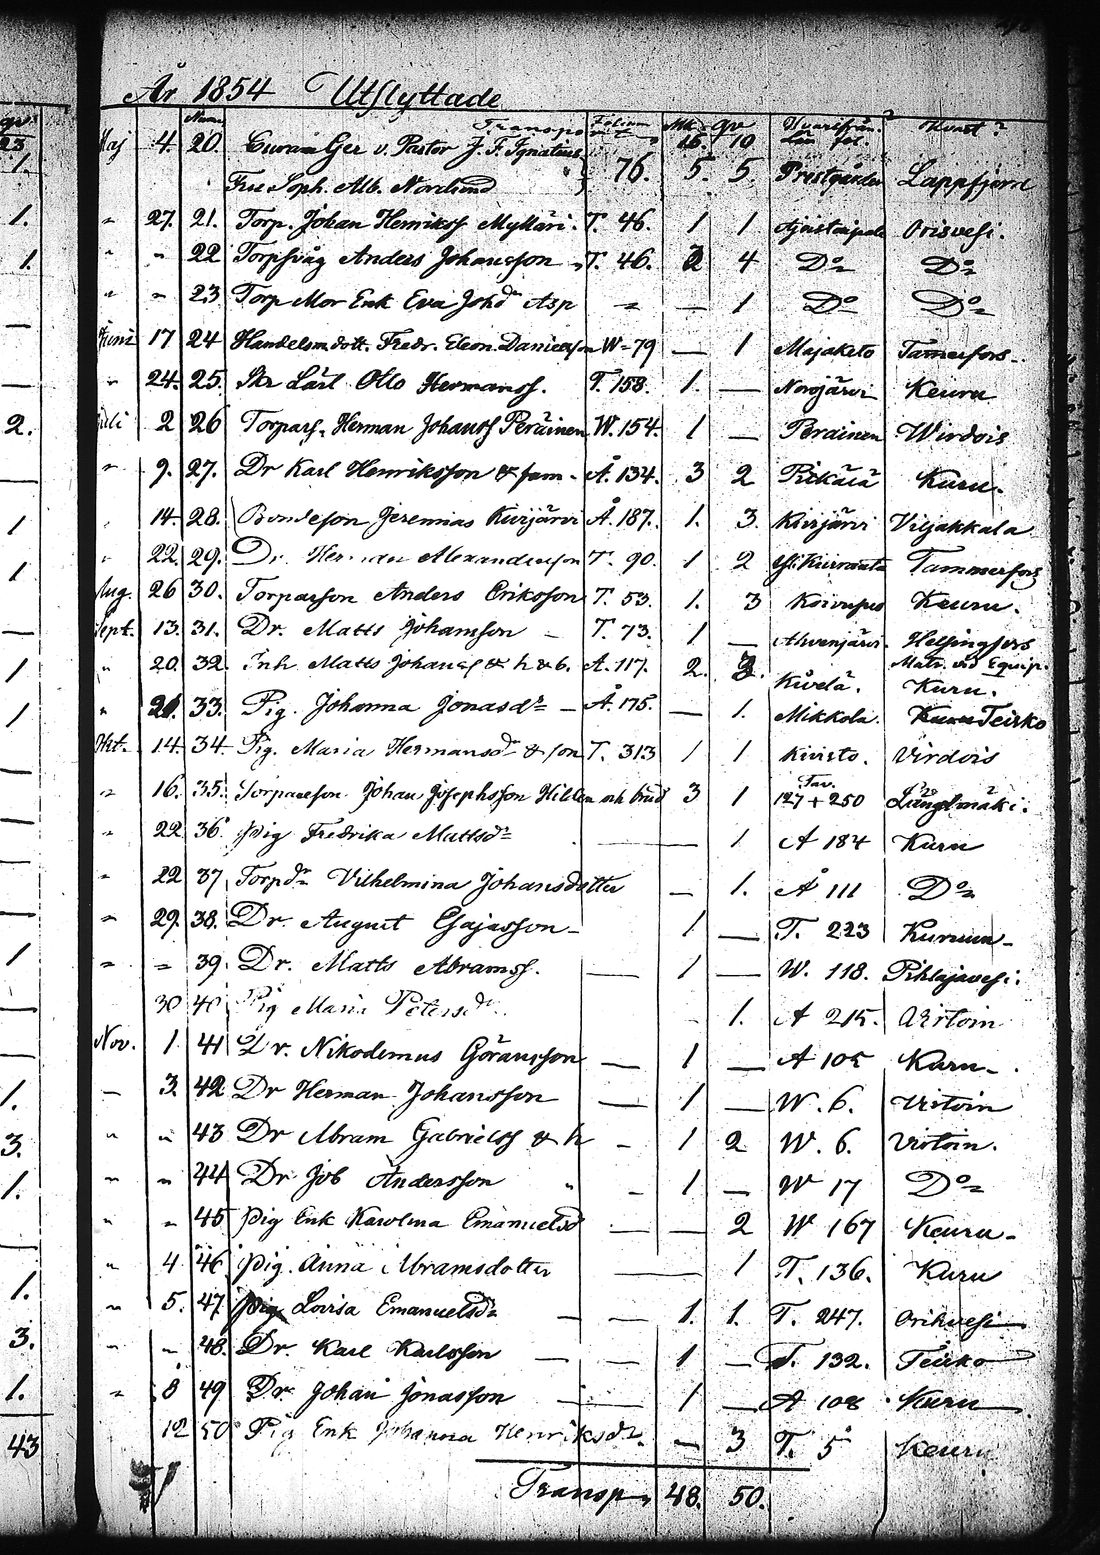 År 1854 Utflyttade
Num. Transp. Folium Mk. qv Hvarifrån? Hvart?
16. 19
Maj 4. 20. Ger v. Pastor J. F. Ignatius
Fru Soph. Alb. Nordlund 76. 5. 5. Prestgården Lappfjerd
" 27. 21. Torp. Johan Henrikss Mylläri. T. 46. 1 1 Orisvesi.
" " 22 Torpsvåg Anders Johansson T. 46. 2 4 Do Do
" " 23 Torp Mor Enk Eva Johd Asp " — 1 Do Do
Juni 17 24 Handelsm dott. Fredr. Eleon. Danielsson W-79 — 1 Majaketo Tamerfors
" 24. 25. Skr Lärl Otto Hermanss. T. 158. 1. — Norojärvi Keuru
Juli 2 26 Torpars. Herman Johanss Peräinen W. 154. 1 — Peräinen Wirdois
" 9. 27. Dr Karl Henriksson & fam. A. 134. 3 2 Kuru.
" 14. 28. Bondeson Jeremias Kurjärvi Å. 187. 1. 3. Viljakkala
" 22. 29. Dr. Herman Alexandersson T. 90. 1 2 Tammerfors
Aug. 26 30. Torparson Anders Eriksson T. 53. 1. 3 Keuru.
Sept. 13. 31. Dr. Matts Johansson — T. 73. 1 — Ahvenjärvi. Helsingfors
Matr. vid Equip.
" 20. 32. Inh Matts Johanss & h & b. A. 117. 2. 3. Kivelä. Kuru.
" 21. 33. Pig. Johanna Jonasdr — Å. 175. — 1. Mikkola. Kuru Teisko
Okt. 14. 34 Pig. Maria Hermansdr & son T. 313 1 1 Kivisto. Virdois
" 16. 35. Torpareson Johan Josephsson Hilden och brud 3 1 Tav. 127 + 250 Längelmäki.
" 22 36. Pig Fredrika Mattsdr — 1 A 184 Kuru
" 22 37 Torpdr Vilhelmina Johansdotter — 1. Å 111 Do
" 29. 38. Dr. August Esajasson 1 — T. 223
" " 39. Dr. Matts Abramss. — 1 — W. 118. Pihlajavesi.
30 40 Pig Maria Petersdr 1. A 215. Virtoin
Nov. 1 41 Dr. Nikodemus Göransson — 1 — A 105 Kuru
— 3. 42 Dr Herman Johansson — 1 — W. 6. Virtoin
" " 43 Dr Abram Gabrielss & h — 1 2 W. 6. Virtoin.
" " 44 Dr Job Andersson " — 1 — W 17 Do
" " 45 Pig Enk Karolina Emanuelsd — — 2 W 167 Keuru
" 4 46 Pig. Anna Abramsdotter — 1 T. 136. Kuru
" 5. 47 Pig Lovisa Emanuelsdr — — 1. 1. T. 247. Orihvesi
" " 48. Dr. Karl Karlsson — — 1 — T. 132. Teisko
" 8 49 Dr. Johan Jonasson — 1 — A 108 Kuru
12 50 Pig Enk Johanna Henriksdr. — 3 T. 5 Keuru
Transp. 48. 50.
qv.
23
1.
1.
1.
—
—
2.
—
1
1
—
1
1
1
1.
3.
1.
1.
3.
1.
43